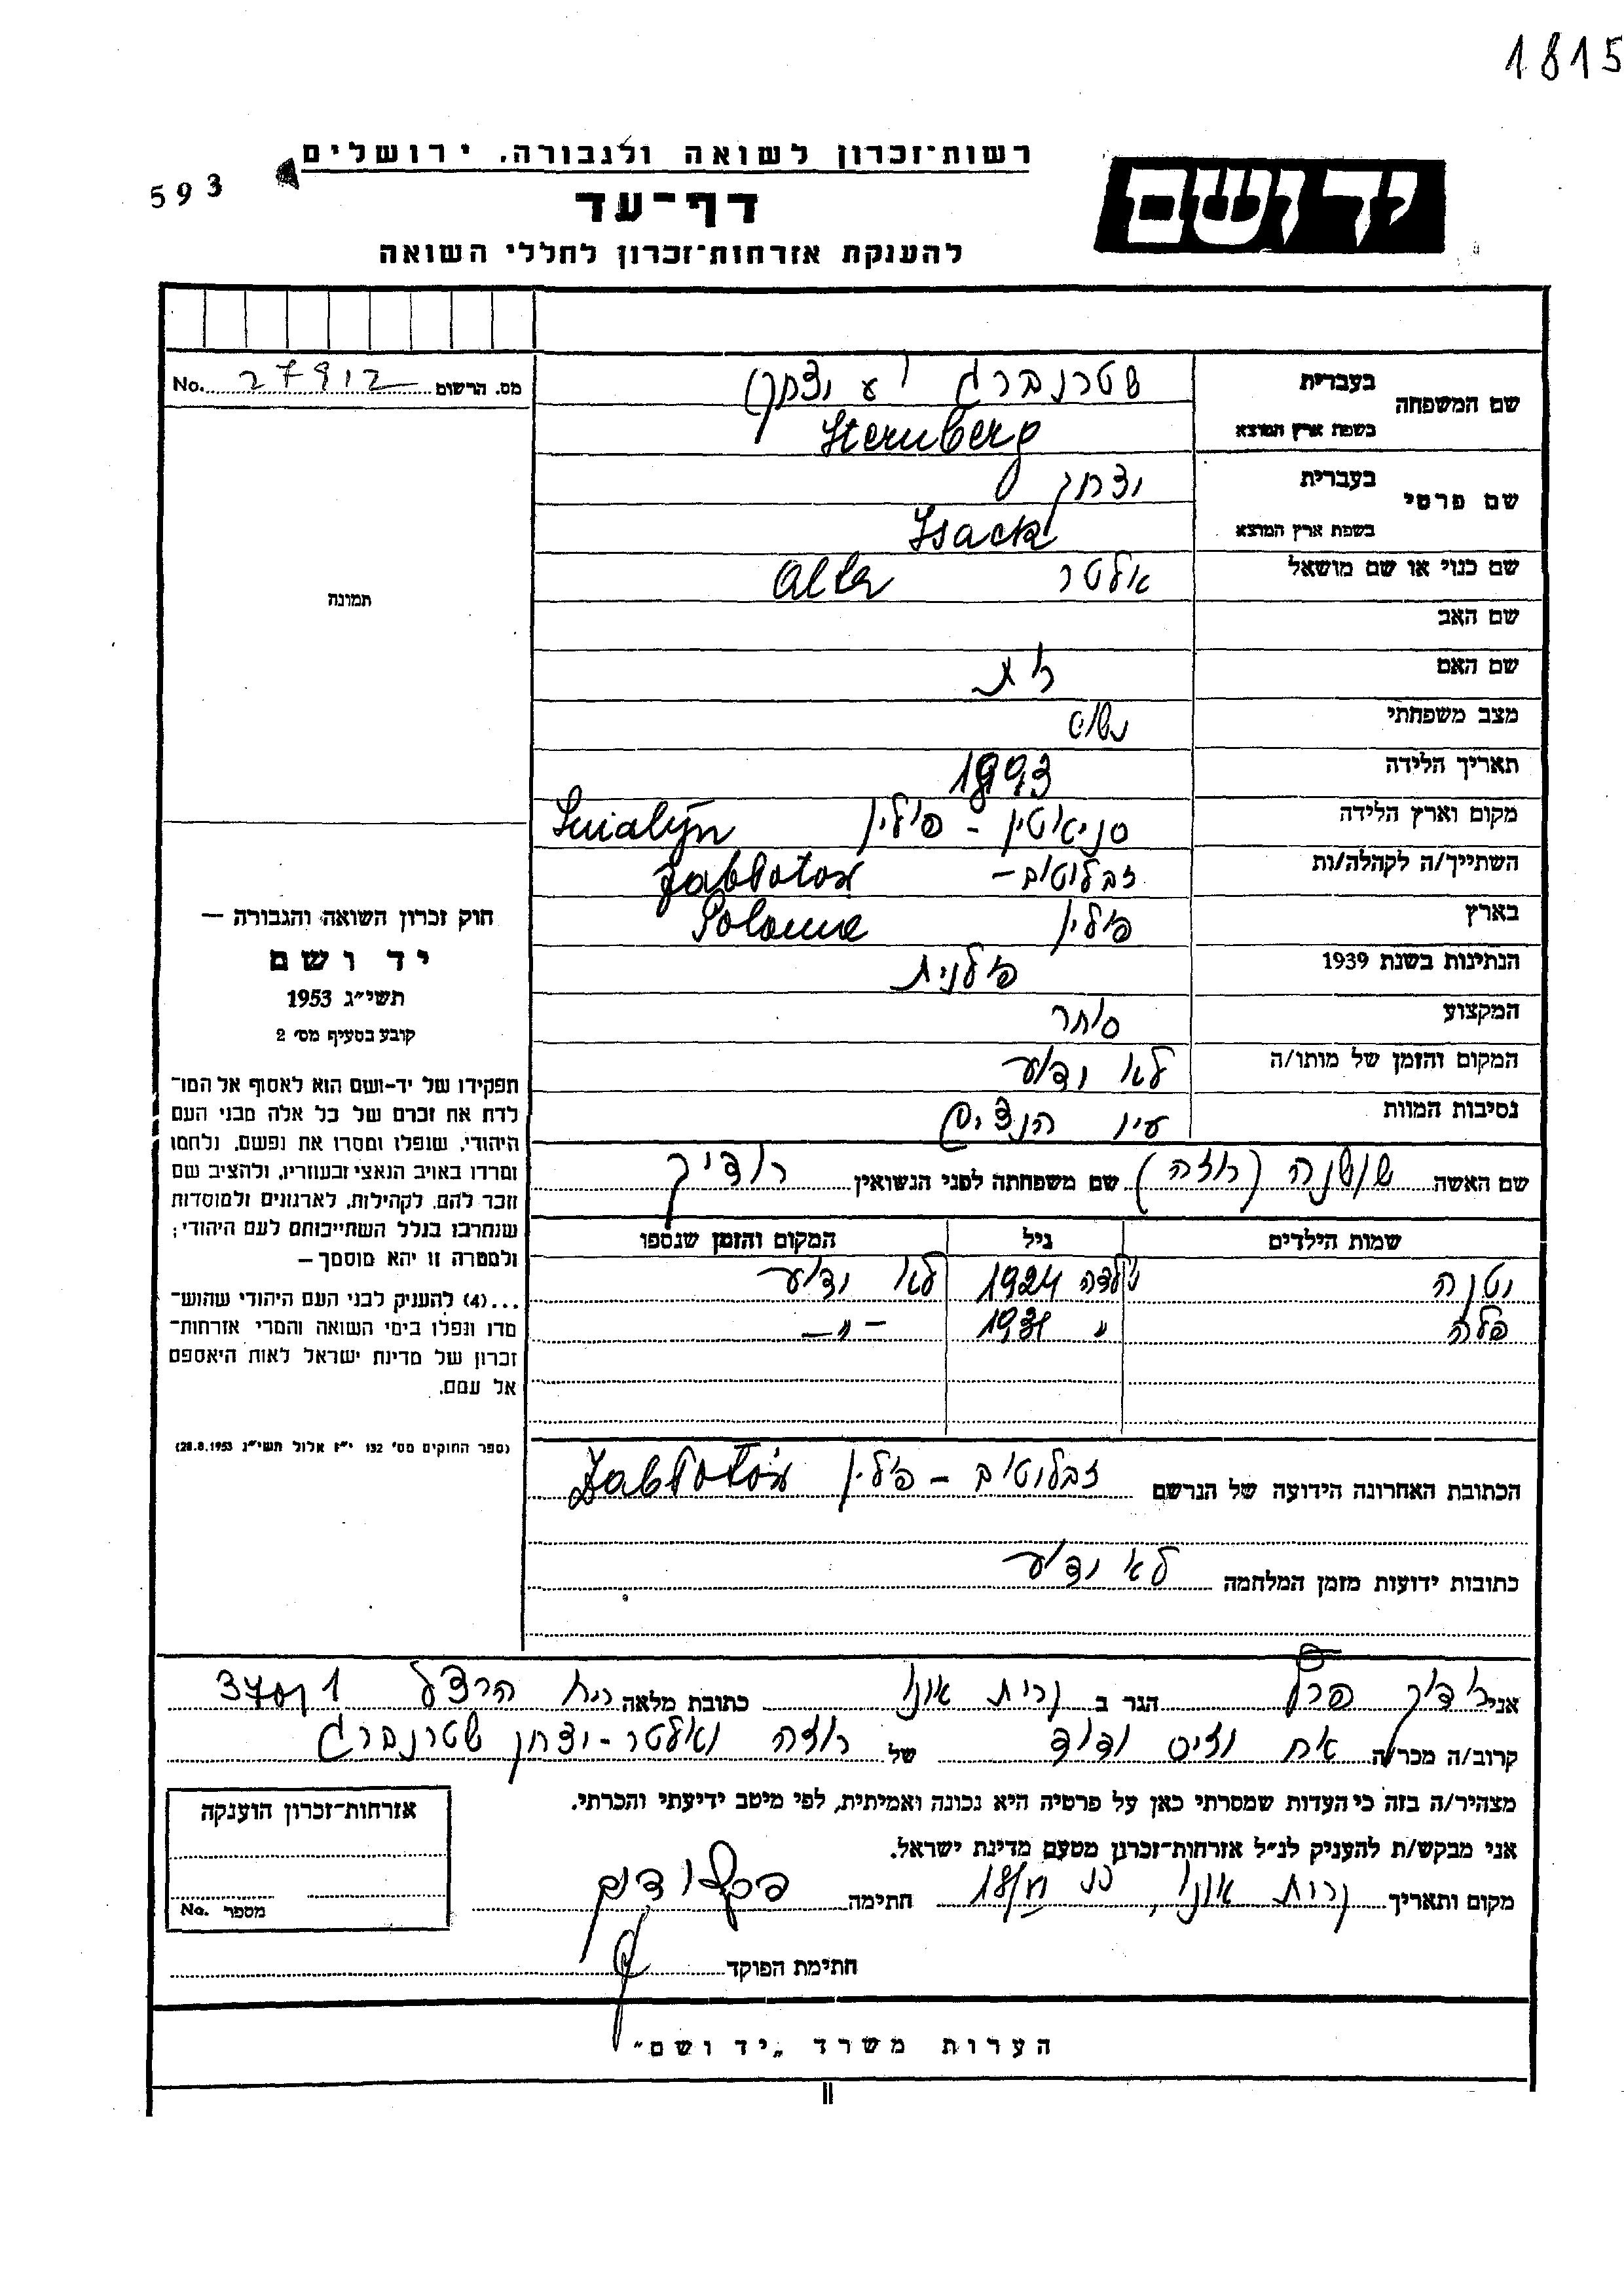 1815
רשות־זכרון לשואה ולגבורה, ירושלים
593
יד ושם
דף־עד
להענקת אזרחות־זכרון לחללי השואה
מס. הרשום 27912 No.
שם המשפחה בעברית שטרנברג
בשפת ארץ המוצא Sternberg
שם פרטי בעברית יצחק
בשפת ארץ המוצא Isack
שם כנוי או שם מושאל אלטר Alter
שם האב
שם האם
מצב משפחתי נשוי
תאריך הלידה 1893
מקום וארץ הלידה סניאטין - פולין Sniatyn
השתייך/ה לקהלה/ות זבלוטוב - Zabłotów
בארץ פולין Polonia
הנתינות בשנת 1939 פולנית
המקצוע סוחר
המקום והזמן של מותו/ה לא ידוע
נסיבות המוות ע"י הנצים
שם האשה שושנה (רוזה) שם משפחתה לפני הנשואין רודיך
שמות הילדים גיל המקום והזמן שנספו
יטנה ילדה 1924 לא ידוע
פלה " 1931 - " -
הכתובת האחרונה הידועה של הנרשם זבלוטוב - פולין Zabłotów
כתובות ידועות מזמן המלחמה לא ידוע
תמונה
חוק זכרון השואה והגבורה —
יד ושם
תשי״ג 1953
קובע בסעיף מס׳ 2
תפקידו של יד-ושם הוא לאסוף אל המו־
לדת את זכרם של כל אלה מבני העם
היהודי, שנפלו ומסרו את נפשם, נלחמו
ומרדו באויב הנאצי ובעוזריו, ולהציב שם
וזכר להם, לקהילות, לארגונים ולמוסדות
שנחרבו בגלל השתייכותם לעם היהודי;
ולמטרה זו יהא מוסמך —
...(4) להעניק לבני העם היהודי שהוש־
מדו ונפלו בימי השואה והמרי אזרחות־
זכרון של מדינת ישראל לאות היאספם
אל עמם.
(ספר החוקים מס׳ 132 י״ז אלול תשי״ג 28.8.1953)
אני רודיך הגר ב קרית אונו כתובת מלאה רח הרצל
קרוב/ה מכר/ה אח וגיס של רוזה ואלטר-יצחק שטרנברג
מצהיר/ה בזה כי העדות שמסרתי כאן על פרטיה היא נכונה ואמיתית, לפי מיטב ידיעתי והכרתי.
אני מבקש/ת להעניק לנ״ל אזרחות־זכרון מטעם מדינת ישראל.
מקום ותאריך קרית אונו, חתימה
חתימת הפוקד
אזרחות־זכרון הוענקה
מספר No.
הערות משרד „יד ושם״